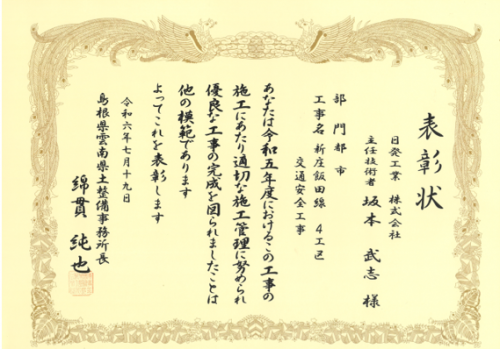 表彰状
日発工業 株式会社
主任技術者 坂本 武志 様
部門 都市
工事名 新庄飯田線 4工区
交通安全工事
あなたは令和五年度におけるこの工事の
施工にあたり適切な施工管理に努められ
優良な工事の完成を図られましたことは
他の模範であります
よってこれを表彰します
令和六年七月十九日
島根県雲南県土整備事務所長
綿貫 純也